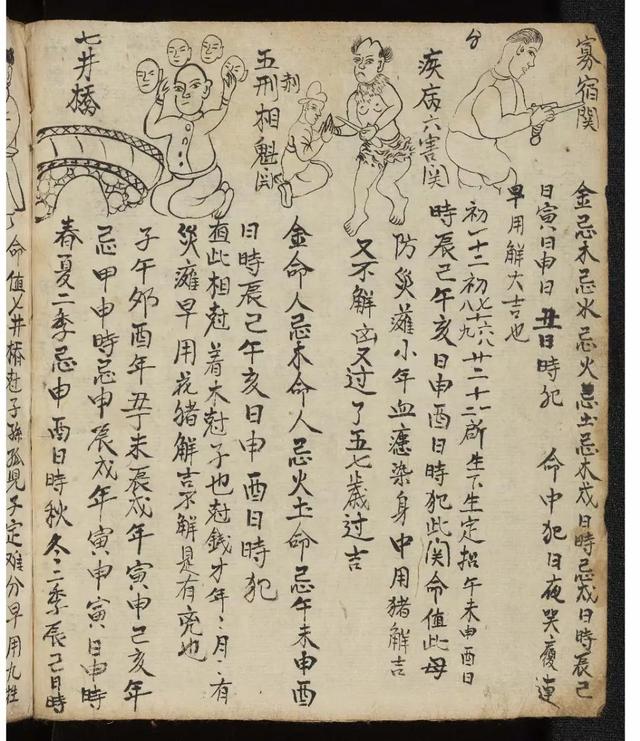 寡宿関
金忌木忌水忌火忌土忌木戍日時忌戍日時辰己
日寅日申日丑日時犯 命中犯日夜哭 連
早用解大吉也
疾病六害関
初一十二初七十六八廿二十
八九
所生下生定招午未申酉日
時辰己午亥日申酉日時犯此関命值此母
防災灘小年血 染身中用猪解吉
又不解凶又过了五七歳过吉
五刑相魁関
剋
金命人忌木命人忌火土命忌午未申酉
日時辰己午亥日申酉日時犯
值此相尅着木尅子也尅銭才年〻月〻有
災灘早用花猪解吉不解是有 也
七井橋
子午夘酉年丑丁未辰戍年寅申己亥年
忌甲申時忌申辰戍年寅申寅日申時
春夏二季忌申酉日時秋冬二季辰己日時
命值七井橋尅子孫孤児子定难分早用九牲